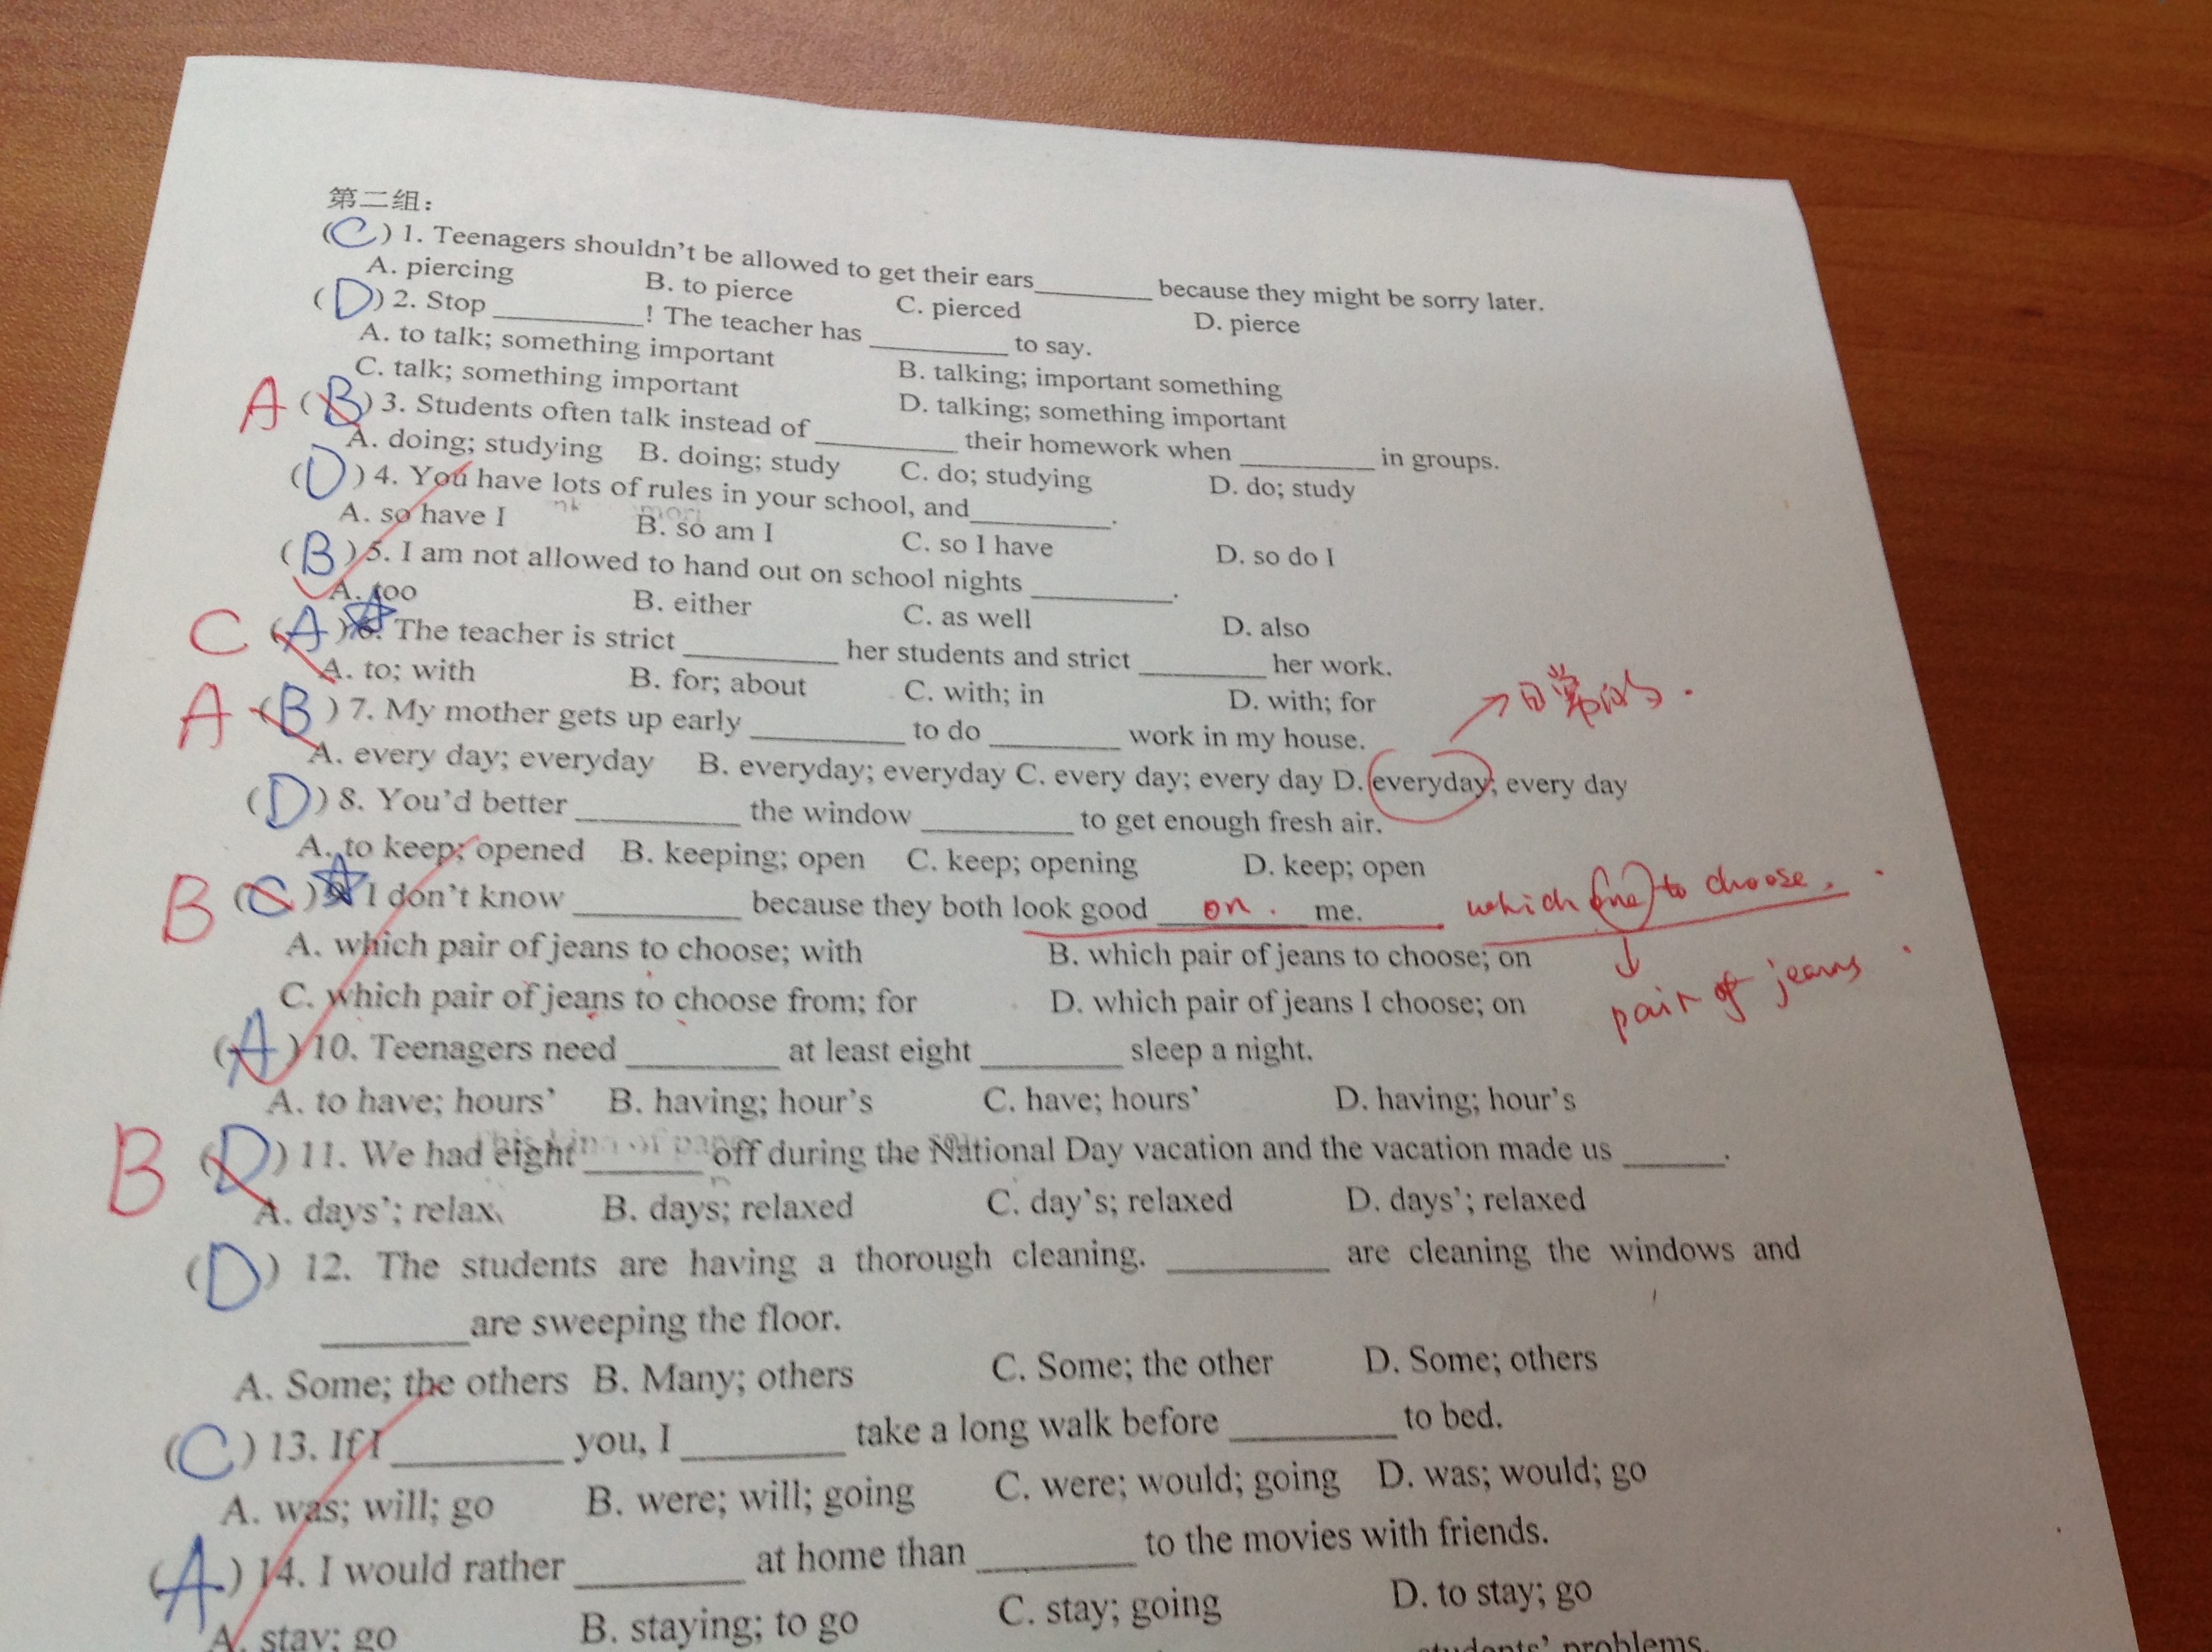 第二组：
(C) 1. Teenagers shouldn't be allowed to get their ears________ because they might be sorry later.
A. piercing B. to pierce C. pierced D. pierce
(D) 2. Stop __________! The teacher has __________ to say.
A. to talk; something important B. talking; important something
C. talk; something important D. talking; something important
A (B) 3. Students often talk instead of __________ their homework when __________ in groups.
A. doing; studying B. doing; study C. do; studying D. do; study
(D) 4. You have lots of rules in your school, and__________.
A. so have I B. so am I C. so I have D. so do I
(B) 5. I am not allowed to hand out on school nights __________.
A. too B. either C. as well D. also
C (A) 6. The teacher is strict __________ her students and strict __________ her work.
A. to; with B. for; about C. with; in D. with; for
A (B) 7. My mother gets up early __________ to do __________ work in my house. 日常的.
A. every day; everyday B. everyday; everyday C. every day; every day D. everyday; every day
(D) 8. You'd better __________ the window __________ to get enough fresh air.
A. to keep; opened B. keeping; open C. keep; opening D. keep; open
B (C) 9. I don't know __________ because they both look good on. me. which one to choose.
A. which pair of jeans to choose; with B. which pair of jeans to choose; on
pair of jeans
C. which pair of jeans to choose from; for D. which pair of jeans I choose; on
(A) 10. Teenagers need __________ at least eight __________ sleep a night.
A. to have; hours' B. having; hour's C. have; hours' D. having; hour's
B (D) 11. We had eight ________ off during the National Day vacation and the vacation made us _______.
A. days'; relax B. days; relaxed C. day's; relaxed D. days'; relaxed
(D) 12. The students are having a thorough cleaning. __________ are cleaning the windows and
__________are sweeping the floor.
A. Some; the others B. Many; others C. Some; the other D. Some; others
(C) 13. If I __________ you, I __________ take a long walk before __________ to bed.
A. was; will; go B. were; will; going C. were; would; going D. was; would; go
(A) 14. I would rather __________ at home than __________ to the movies with friends.
A. stay; go B. staying; to go C. stay; going D. to stay; go
students' problems.